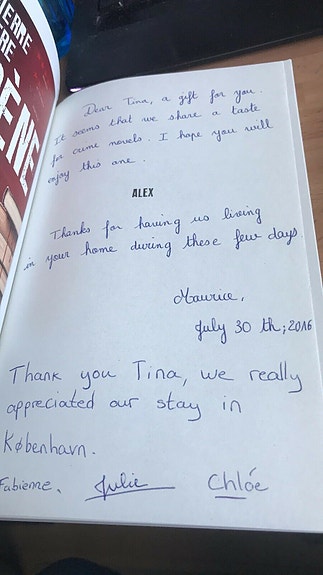 Dear Tina, a gift for you.
It seems that we share a taste
for crime novels. I hope you will
enjoy this one.
ALEX
Thanks for having us living
in your home during these few days.
Maurice,
July 30 th, 2016
Thank you Tina, we really
appreciated our stay in
København.
Fabienne. Julie Chloé